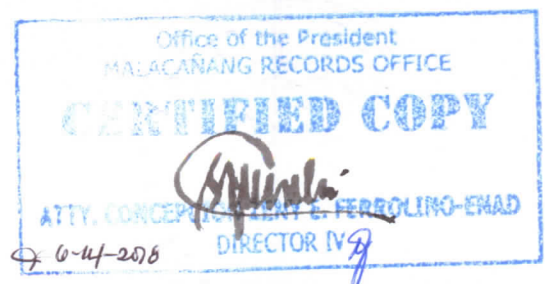 Office of the President
MALACAÑANG RECORDS OFFICE
CERTIFIED COPY
ATTY. CONCEPCION ZENY E. FERROLINO-ENAD
DIRECTOR IV
6-14-2018